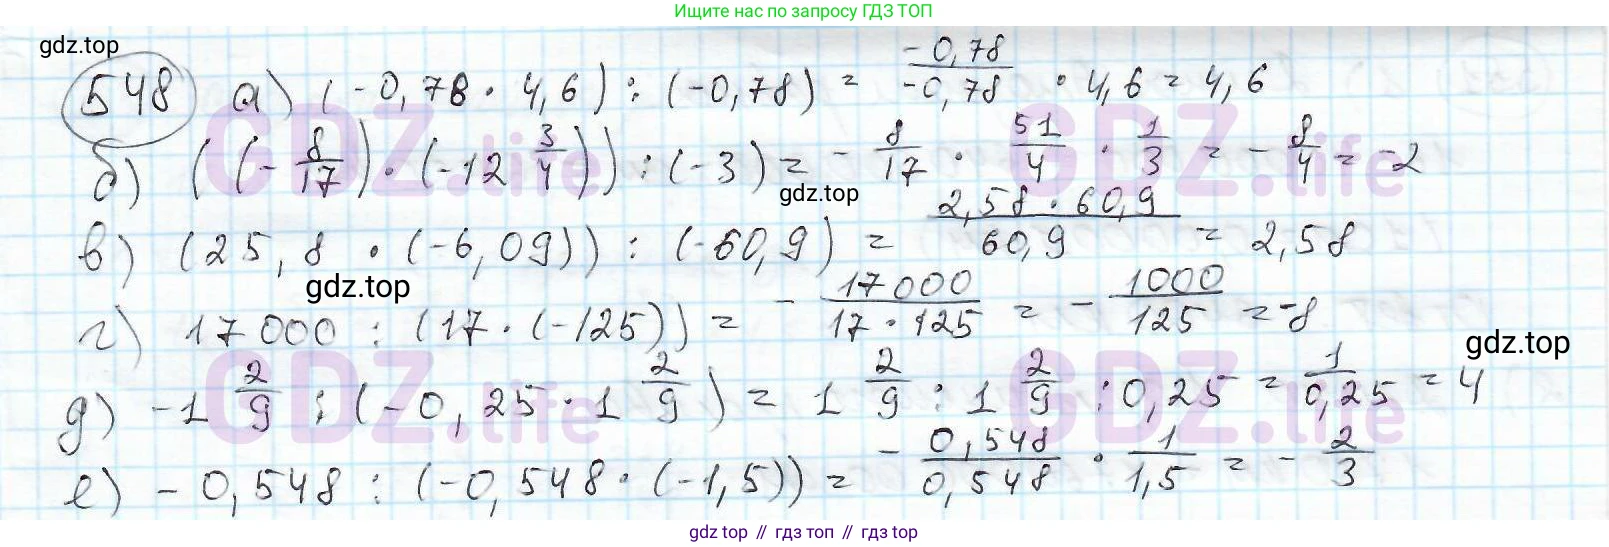 Ищите нас по запросу ГДЗ ТОП
gdz.top
548 а) (-0,78 · 4,6) : (-0,78) = -0,78/-0,78 · 4,6 = 4,6
б) ((-8/17) · (-12 3/4)) : (-3) = -8/17 · 51/4 · 1/3 = -8/4 = -2
gdz.top
в) (25,8 · (-6,09)) : (-60,9) = 2,58 · 60,9/60,9 = 2,58
gdz.top
г) 17000 : (17 · (-125)) = -17000/17 · 125 = -1000/125 = -8
gdz.top
д) -1 2/9 : (-0,25 · 1 2/9) = 1 2/9 : 1 2/9 : 0,25 = 1/0,25 = 4
е) -0,548 : (-0,548 · (-1,5)) = -0,548/0,548 · 1/1,5 = -2/3
GDZ.life GDZ.life
GDZ.life GDZ.life
gdz top // гдз топ // gdz top